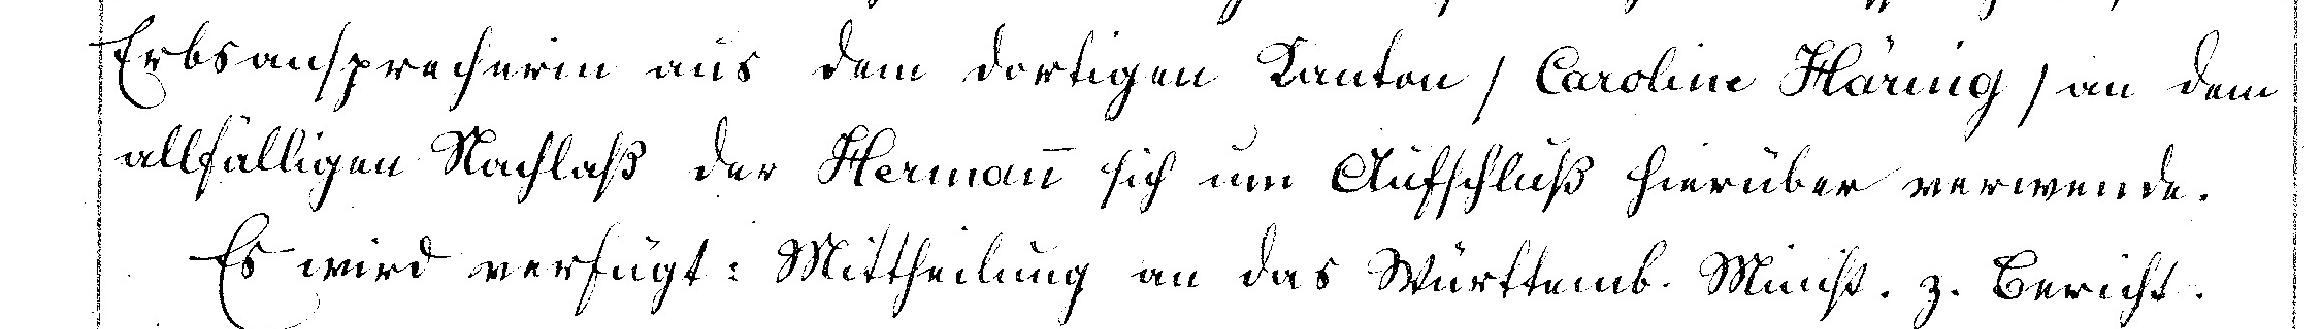 Erbsansprecherin aus dem dortigen Kanton / Caroline Häring / an dem
allfälligen Nachlaß der Herman̅ sich um Aufschluß hierüber verwende.
Es wird verfügt: Mittheilung an das Württemb. Minist. z. Bericht.